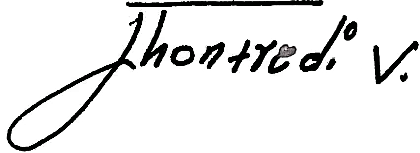 Jhontredi V.